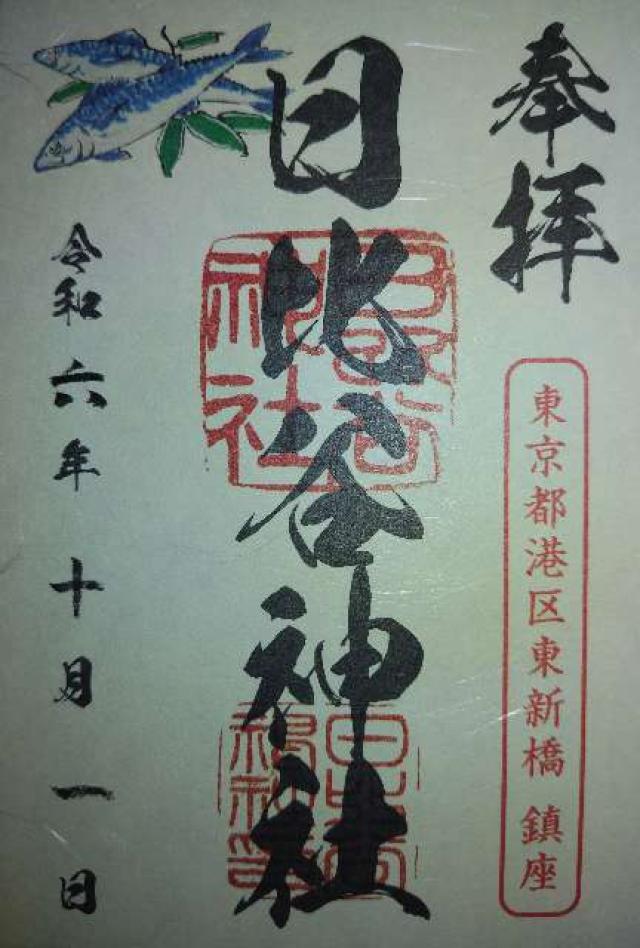 奉拝
東京都港区東新橋 鎮座
日比谷神社
令和六年十月一日